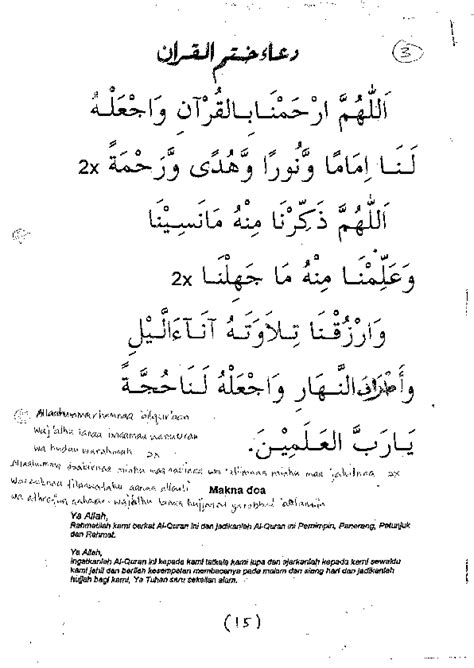 دعاء ختم القران
3
اَللّٰهُمَّ ارْحَمْنَا بِالقُرْآنِ وَاجْعَلْهُ
لَنَا اِمَامًا وَّنُورًا وَّهُدًى وَّرَحْمَةً 2x
اَللّٰهُمَّ ذَكِّرْنَا مِنْهُ مَا نَسِيْنَا
وَعَلِّمْنَا مِنْهُ مَا جَهِلْنَا 2x
وَارْزُقْنَا تِلَاوَتَهُ آنَآءَ الَّيْلِ
وَأَطْرَافَ النَّهَارِ وَاجْعَلْهُ لَنَا حُجَّةً
يَارَبَّ الْعَلَمِيْنَ.
Allahummarhamnaa bilqur'aan
waj'alhu lanaa imaamaa wanuuran
wa hudau warahmah 2x
Allahumma dzakirnaa minhu maa nasiinaa wa 'allimnaa minhu maa jahilnaa 2x
Warzuqnaa tilaawatahu aanaa allaili
Makna doa
waj'alhu lanaa hujjatan
Ya Allah,
Rahmatilah kami berkat Al-Quran ini dan jadikanlah Al-Quran ini Pemimpin, Penerang, Petunjuk
dan Rahmat.
Ya Allah,
ingatkanlah Al-Quran ini kepada kami tatkala kami lupa dan ajarkanlah kepada kami sewaktu
kami jahil dan berilah kesempatan membacanya pada malam dan siang hari dan jadikanlah
hujjah bagi kami, Ya Tuhan seru sekalian alam.
(15)